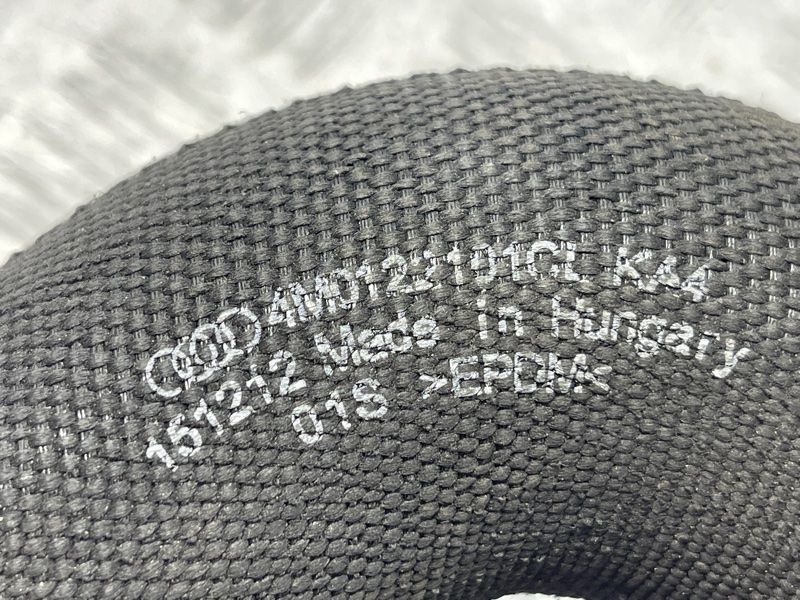 4M0122101CL KAA
151212 Made in Hungary
01S >EPDM<